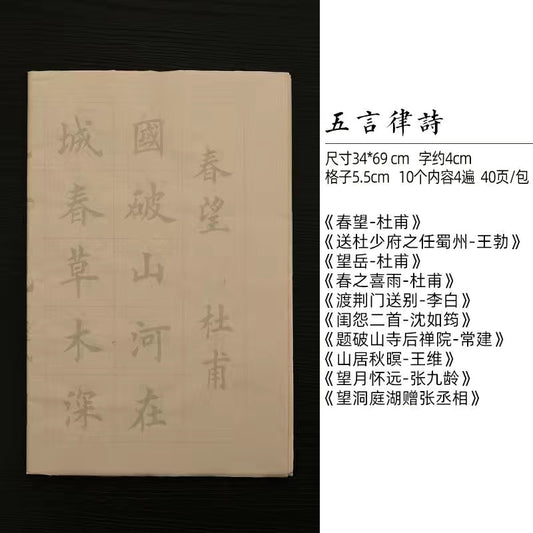 春望 杜甫
國破山河在
城春草木深
五言律詩
尺寸34*69 cm 字约4cm
格子5.5cm 10个内容4遍 40页/包
《春望-杜甫》
《送杜少府之任蜀州-王勃》
《望岳-杜甫》
《春之喜雨-杜甫》
《渡荆门送别-李白》
《闺怨二首-沈如筠》
《题破山寺后禅院-常建》
《山居秋暝-王维》
《望月怀远-张九龄》
《望洞庭湖赠张丞相》